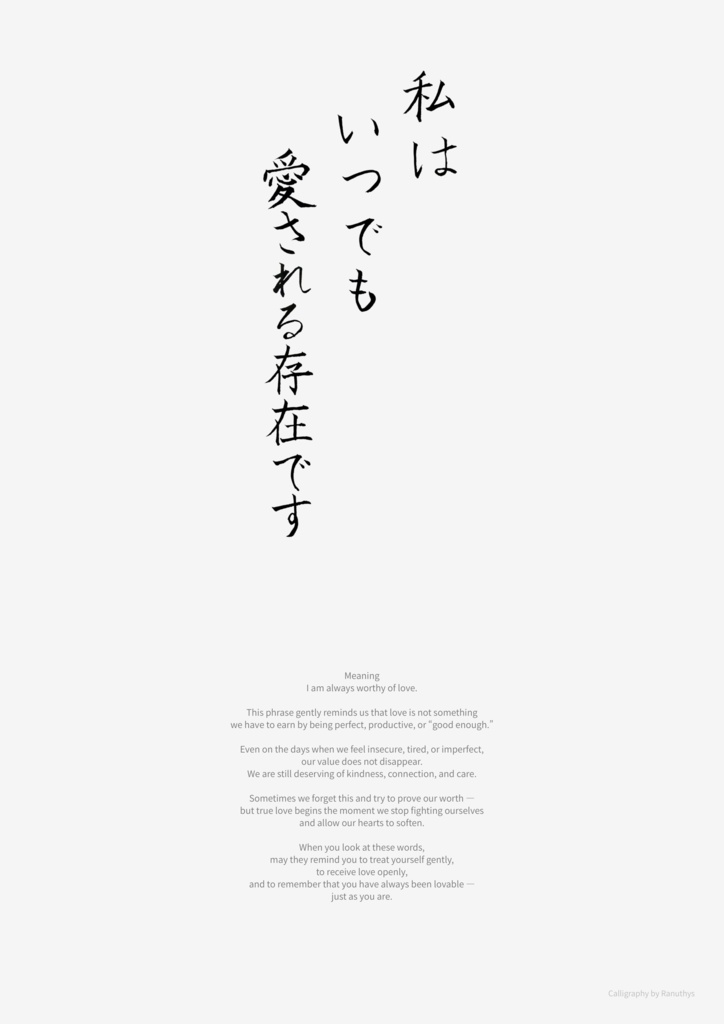 私は
いつでも
愛される存在です
Meaning
I am always worthy of love.
This phrase gently reminds us that love is not something
we have to earn by being perfect, productive, or “good enough.”
Even on the days when we feel insecure, tired, or imperfect,
our value does not disappear.
We are still deserving of kindness, connection, and care.
Sometimes we forget this and try to prove our worth —
but true love begins the moment we stop fighting ourselves
and allow our hearts to soften.
When you look at these words,
may they remind you to treat yourself gently,
to receive love openly,
and to remember that you have always been lovable —
just as you are.
Calligraphy by Ranuthys